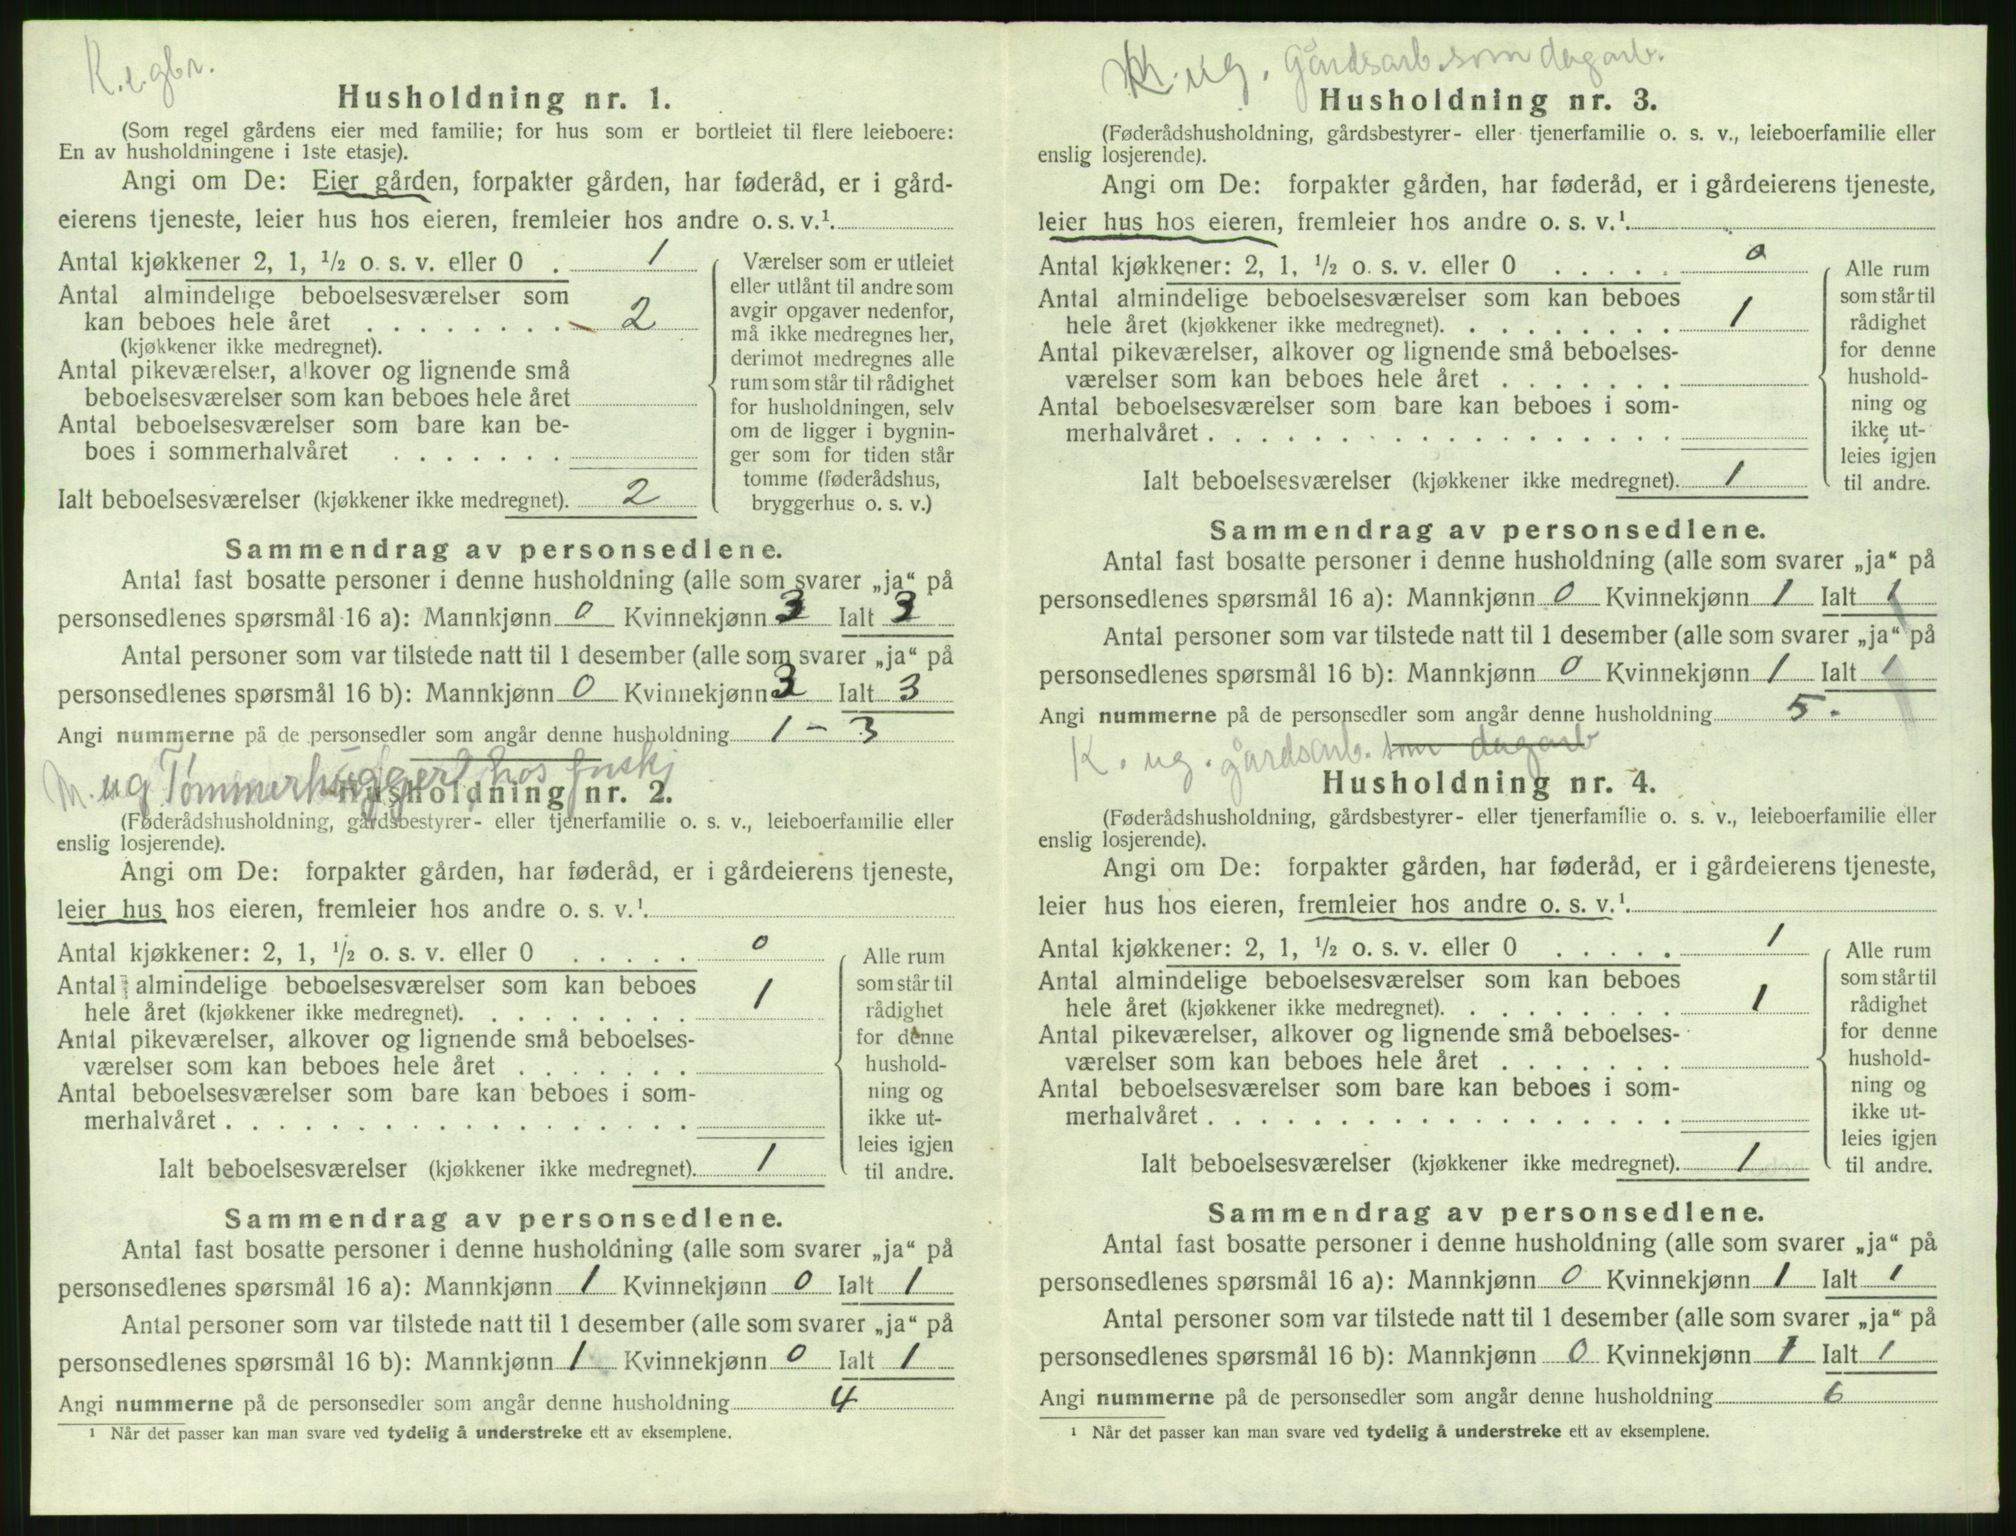 K. e. gbr.
Husholdning nr. 1.
(Som regel gårdens eier med familie; for hus som er bortleiet til flere leieboere:
En av husholdningene i 1ste etasje).
Angi om De: Eier gården, forpakter gården, har føderåd, er i gård-
eierens tjeneste, leier hus hos eieren, fremleier hos andre o. s. v.¹
Antal kjøkkener 2, 1, ½ o. s. v. eller 0 . 1
Antal almindelige beboelsesværelser som
kan beboes hele året . . . . . . . . 2
(kjøkkener ikke medregnet).
Antal pikeværelser, alkover og lignende små
beboelsesværelser som kan beboes hele året
Antal beboelsesværelser som bare kan be-
boes i sommerhalvåret . . . . . . .
Ialt beboelsesværelser (kjøkkener ikke medregnet). 2
Værelser som er utleiet
eller utlånt til andre som
avgir opgaver nedenfor,
må ikke medregnes her,
derimot medregnes alle
rum som står til rådighet
for husholdningen, selv
om de ligger i bygnin-
ger som for tiden står
tomme (føderådshus,
bryggerhus o. s. v.)
Sammendrag av personsedlene.
Antal fast bosatte personer i denne husholdning (alle som svarer „ja“ på
personsedlenes spørsmål 16 a): Mannkjønn 0 Kvinnekjønn 3 Ialt 3
Antal personer som var tilstede natt til 1 desember (alle som svarer „ja“ på
personsedlenes spørsmål 16 b): Mannkjønn 0 Kvinnekjønn 3 Ialt 3
Angi nummerne på de personsedler som angår denne husholdning 1 - 3
M. ug Tømmerhugger hos forskj
Husholdning nr. 2.
(Føderådshusholdning, gårdsbestyrer- eller tjenerfamilie o. s. v., leieboerfamilie eller
enslig losjerende).
Angi om De: forpakter gården, har føderåd, er i gårdeierens tjeneste,
leier hus hos eieren, fremleier hos andre o. s. v.¹
Antal kjøkkener: 2, 1, ½ o. s. v. eller 0 . . . . . 0
Antal almindelige beboelsesværelser som kan beboes
hele året (kjøkkener ikke medregnet). . . . . . . . . 1
Antal pikeværelser, alkover og lignende små beboelses-
værelser som kan beboes hele året . . . . . . .
Antal beboelsesværelser som bare kan beboes i som-
merhalvåret . . . . . . . . . . . . . . . . . .
Ialt beboelsesværelser (kjøkkener ikke medregnet). 1
Alle rum
som står til
rådighet
for denne
hushold-
ning og
ikke ut-
leies igjen
til andre.
Sammendrag av personsedlene.
Antal fast bosatte personer i denne husholdning (alle som svarer „ja“ på
personsedlenes spørsmål 16 a): Mannkjønn 1 Kvinnekjønn 0 Ialt 1
Antal personer som var tilstede natt til 1 desember (alle som svarer „ja“ på
personsedlenes spørsmål 16 b): Mannkjønn 1 Kvinnekjønn 0 Ialt 1
Angi nummerne på de personsedler som angår denne husholdning 4
¹ Når det passer kan man svare ved tydelig å understreke ett av eksemplene.
K. ug. Gårdsarb. som dagarb.
Husholdning nr. 3.
(Føderådshusholdning, gårdsbestyrer- eller tjenerfamilie o. s. v., leieboerfamilie eller
enslig losjerende).
Angi om De: forpakter gården, har føderåd, er i gårdeierens tjeneste,
leier hus hos eieren, fremleier hos andre o. s. v.¹
Antal kjøkkener: 2, 1, ½ o. s. v. eller 0 . . . . . 0
Antal almindelige beboelsesværelser som kan beboes
hele året (kjøkkener ikke medregnet). . . . . . . . . 1
Antal pikeværelser, alkover og lignende små beboelses-
værelser som kan beboes hele året . . . . . . .
Antal beboelsesværelser som bare kan beboes i som-
merhalvåret . . . . . . . . . . . . . . . . . .
Ialt beboelsesværelser (kjøkkener ikke medregnet). 1
Alle rum
som står til
rådighet
for denne
hushold-
ning og
ikke ut-
leies igjen
til andre.
Sammendrag av personsedlene.
Antal fast bosatte personer i denne husholdning (alle som svarer „ja“ på
personsedlenes spørsmål 16 a): Mannkjønn 0 Kvinnekjønn 1 Ialt 1
Antal personer som var tilstede natt til 1 desember (alle som svarer „ja“ på
personsedlenes spørsmål 16 b): Mannkjønn 0 Kvinnekjønn 1 Ialt 1
Angi nummerne på de personsedler som angår denne husholdning 5.
K. ug. gårdsarb. som dagarb
Husholdning nr. 4.
(Føderådshusholdning, gårdsbestyrer- eller tjenerfamilie o. s. v., leieboerfamilie eller
enslig losjerende).
Angi om De: forpakter gården, har føderåd, er i gårdeierens tjeneste,
leier hus hos eieren, fremleier hos andre o. s. v.¹
Antal kjøkkener: 2, 1, ½ o. s. v. eller 0 . . . . . 1
Antal almindelige beboelsesværelser som kan beboes
hele året (kjøkkener ikke medregnet). . . . . . . . . 1
Antal pikeværelser, alkover og lignende små beboelses-
værelser som kan beboes hele året . . . . . . .
Antal beboelsesværelser som bare kan beboes i som-
merhalvåret . . . . . . . . . . . . . . . . . .
Ialt beboelsesværelser (kjøkkener ikke medregnet). 1
Alle rum
som står til
rådighet
for denne
hushold-
ning og
ikke ut-
leies igjen
til andre.
Sammendrag av personsedlene.
Antal fast bosatte personer i denne husholdning (alle som svarer „ja“ på
personsedlenes spørsmål 16 a): Mannkjønn 0 Kvinnekjønn 1 Ialt 1
Antal personer som var tilstede natt til 1 desember (alle som svarer „ja“ på
personsedlenes spørsmål 16 b): Mannkjønn 0 Kvinnekjønn 1 Ialt 1
Angi nummerne på de personsedler som angår denne husholdning 6
¹ Når det passer kan man svare ved tydelig å understreke ett av eksemplene.